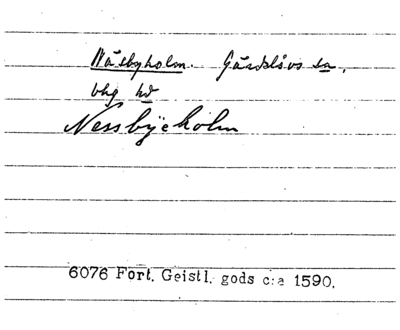 Näsbyholm. Gärdslövs sn,
Vhg hd
Nessbÿeholm
6076 Fört. Geistl. gods c:a 1590.